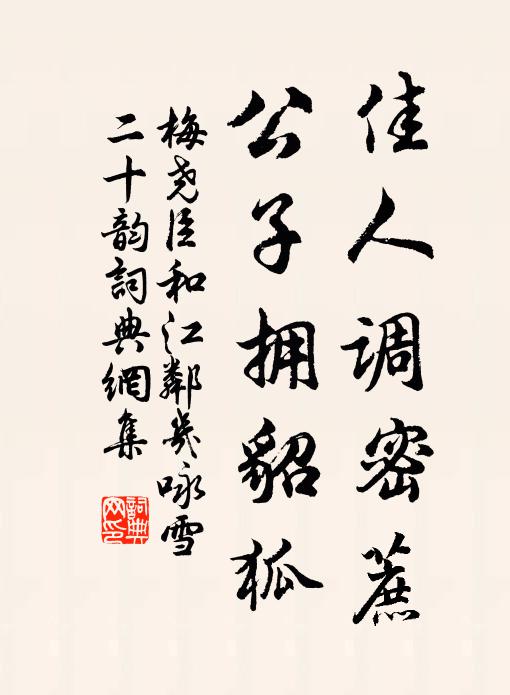 佳人调密蔗
公子拥貂狐
梅尧臣和江鄰幾咏雪
二十韵詞典網集
詞典
网印